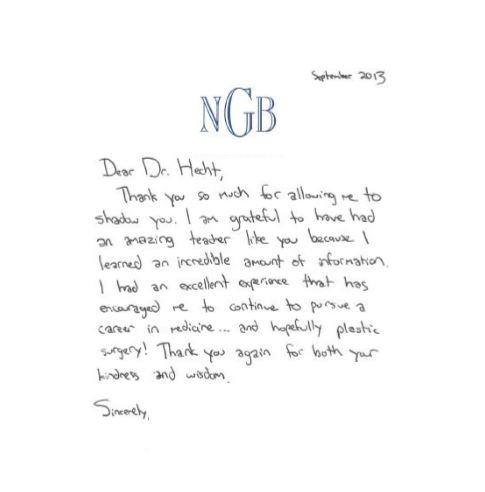 September 2013
NGB
Dear Dr. Hecht,
Thank you so much for allowing me to
shadow you. I am grateful to have had
an amazing teacher like you because I
learned an incredible amount of information.
I had an excellent experience that has
encouraged me to continue to pursue a
career in medicine... and hopefully plastic
surgery! Thank you again for both your
kindness and wisdom.
Sincerely,